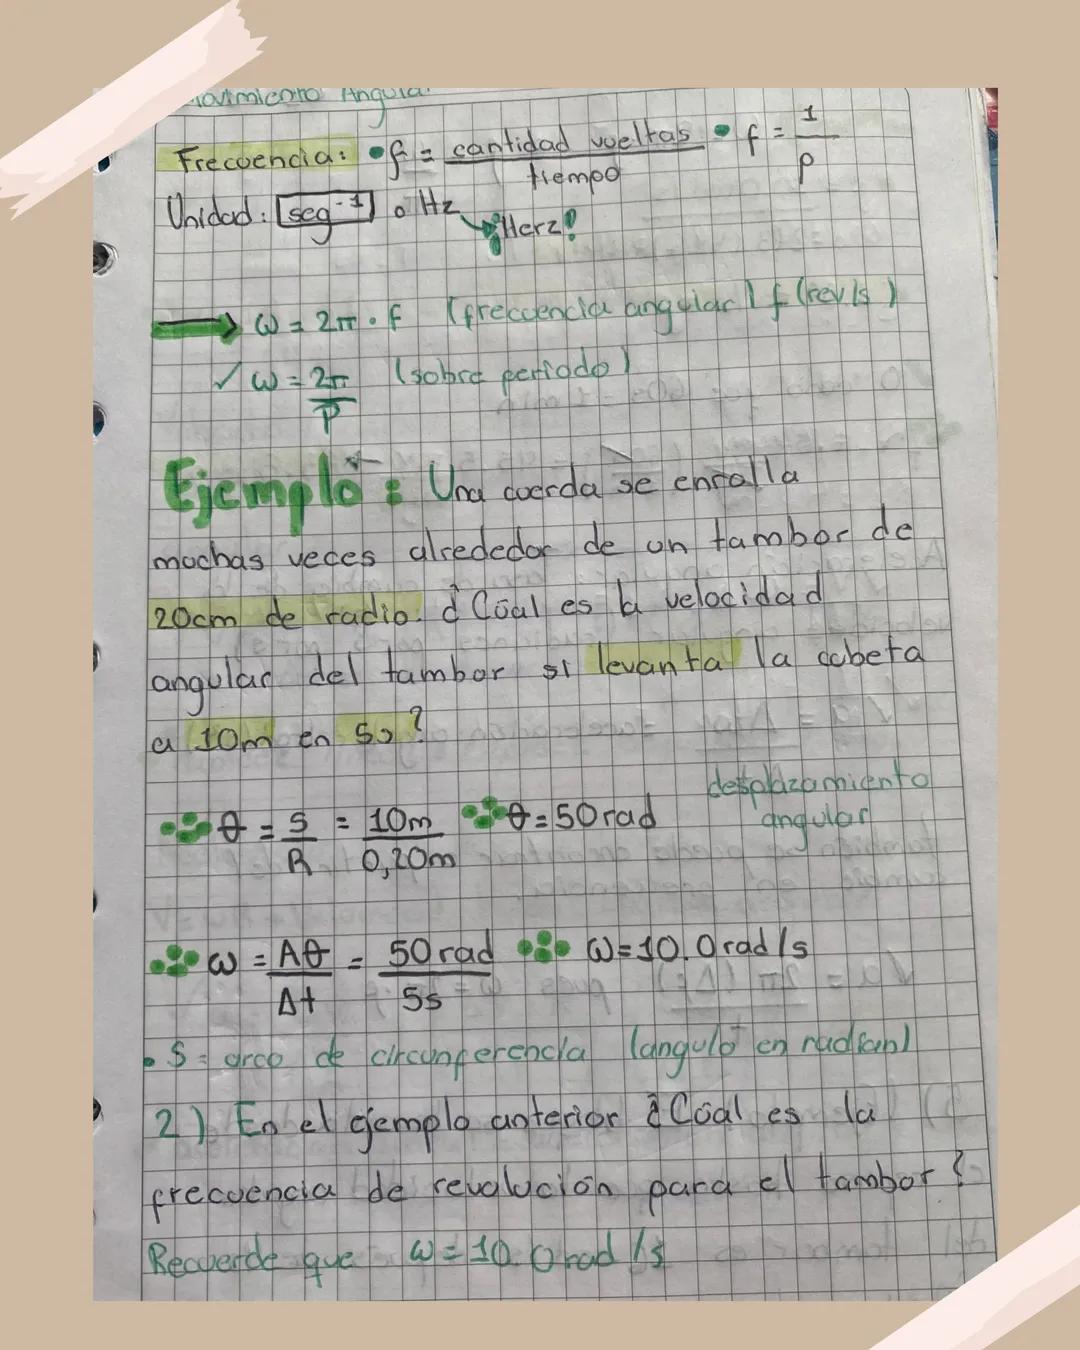 Movimiento Angular
Frecuencia: • f = cantidad vueltas / tiempo • f = 1 / p
Unidad: seg⁻¹ o Hz
¡Herz!
ω = 2π · f (frecuencia angular) f (rev/s)
✓ ω = 2π / P (sobre periodo)
Ejemplo: Una cuerda se enrolla
muchas veces alrededor de un tambor de
20cm de radio. ¿Cúal es la velocidad
angular del tambor si levanta la cubeta
a 10m en 5s?
θ = S / R = 10m / 0,20m θ = 50 rad desplazamiento
angular
ω = Δθ / Δt = 50 rad / 5s ω = 10.0 rad/s
• S = arco de circunferencia (angulo en radian)
2) En el ejemplo anterior ¿Cúal es la
frecuencia de revolución para el tambor?
Recuerde que ω = 10.0 rad/s